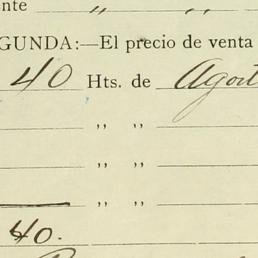 ente „ „
GUNDA:—El precio de venta
40 Hts. de Agost
„ „
„ „
„ „
40.